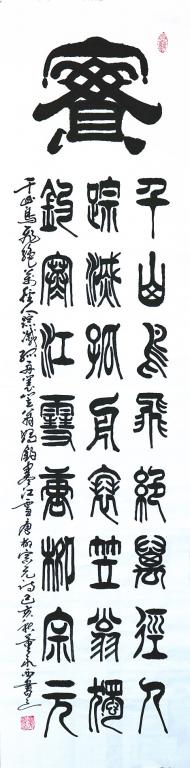 千山鳥飛絕萬徑人
踪滅孤舟蓑笠翁獨
釣寒江雪唐柳宗元
千山鳥飛絕萬徑人踪滅孤舟蓑笠翁獨釣寒江雪唐柳宗元詩己亥秋